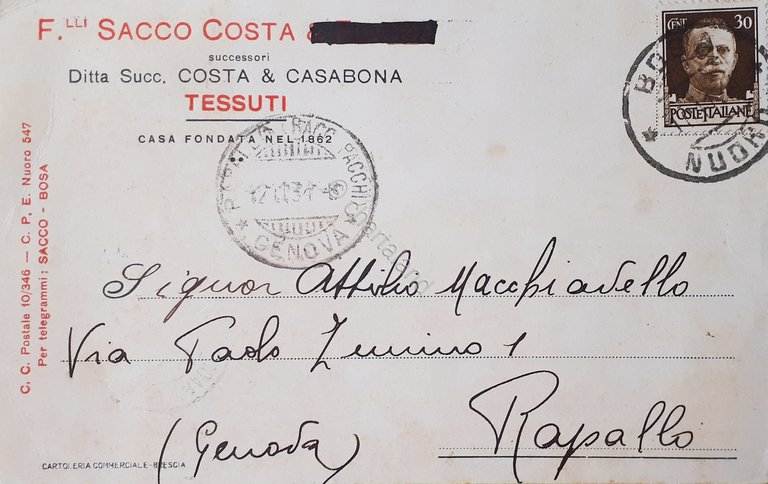 F.LLI SACCO COSTA &
successori
Ditta Succ. COSTA & CASABONA
TESSUTI
CASA FONDATA NEL 1862
C. C. Postale 10/346 — C. P. E. Nuoro 547
Per telegrammi: SACCO - BOSA
CENT 30
POSTE ITALIANE
NUORO
RACC. PACCHI
GENOVA
Signor Attilio Macchiavello
Via Paolo Zunino 1
Rapallo
(Genova)
CARTOLERIA COMMERCIALE-BRESCIA